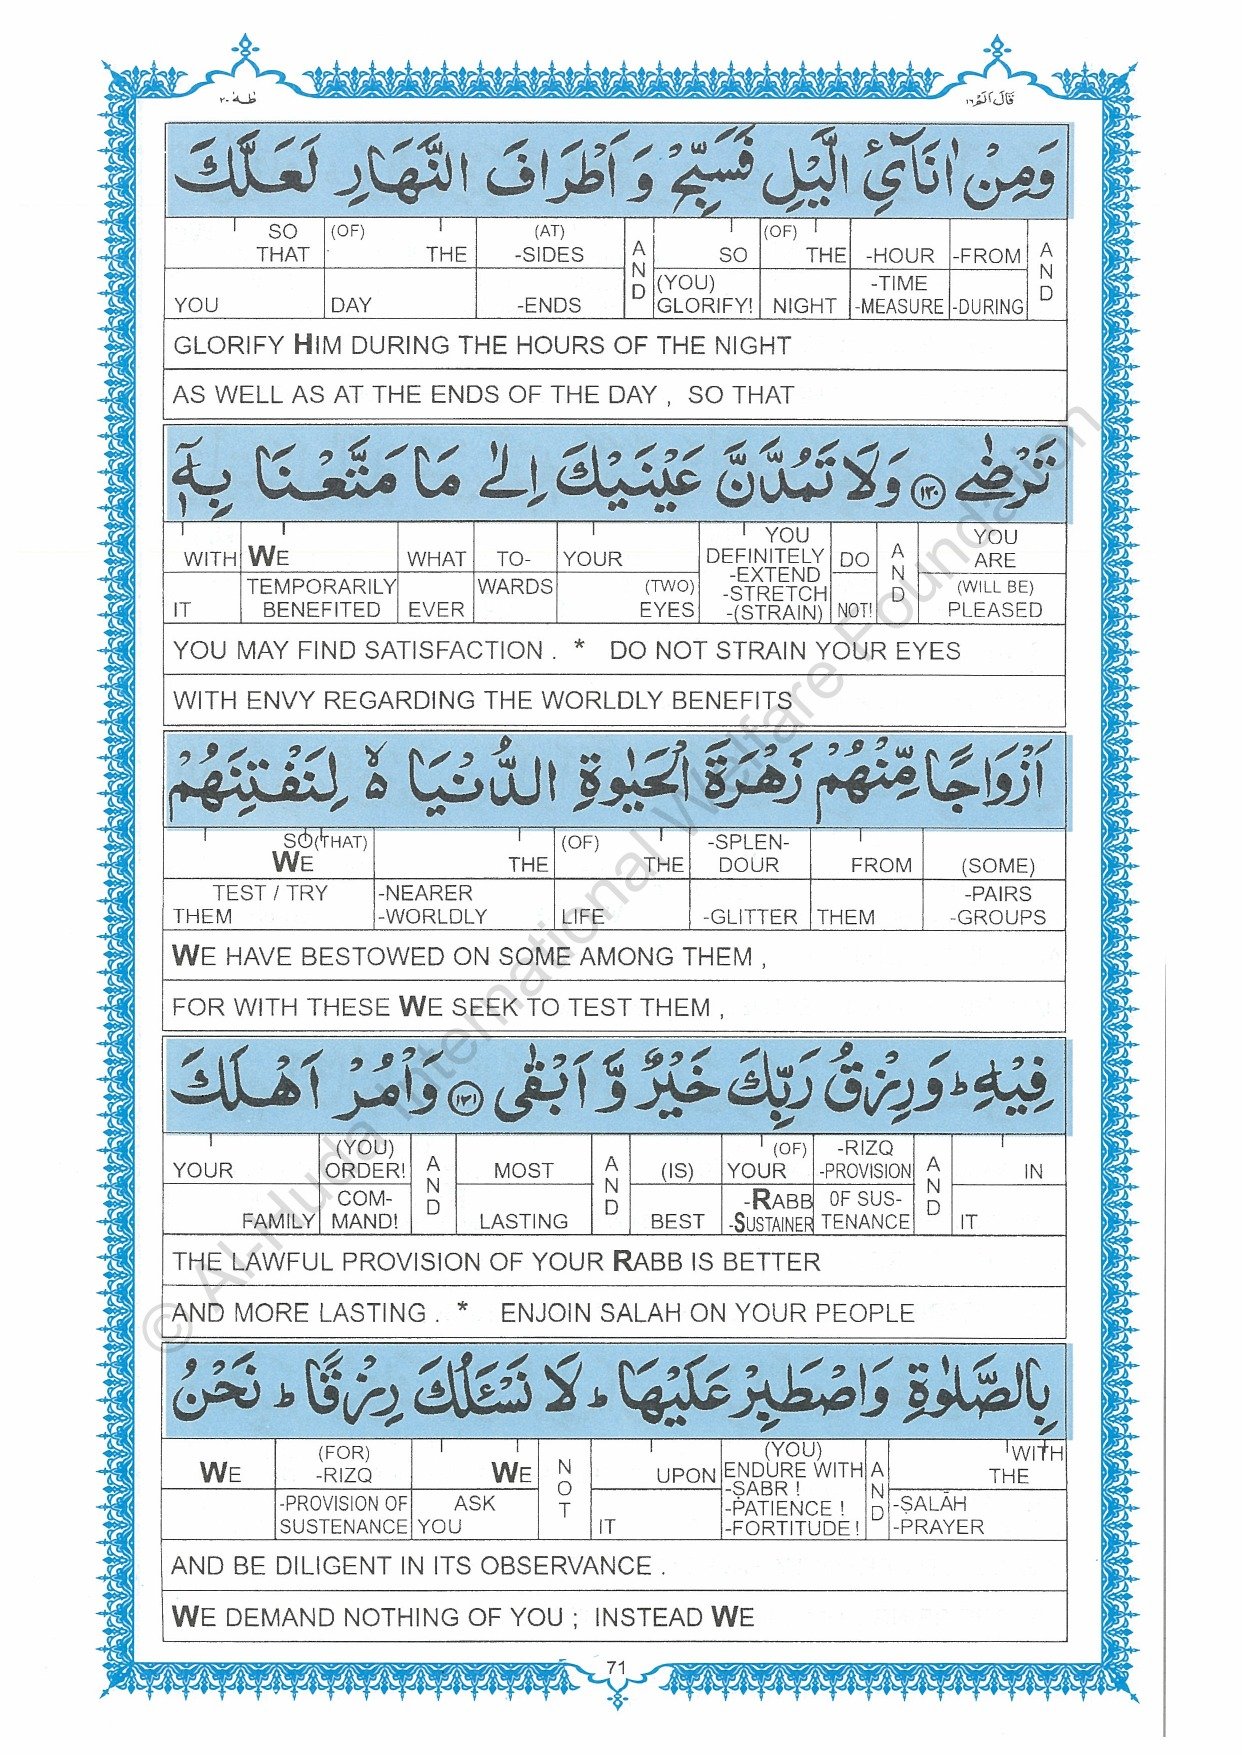 طٰهٰ ٢٠
قَالَ اَلَمْ ١٦
وَمِنْ اٰنَآئِ الَّيْلِ فَسَبِّحْ وَ اَطْرَافَ النَّهَارِ لَعَلَّكَ
SO THAT (OF) THE (AT) -SIDES AND SO (OF) THE -HOUR -FROM AND
YOU DAY -ENDS (YOU) GLORIFY! NIGHT -TIME -MEASURE -DURING
GLORIFY HIM DURING THE HOURS OF THE NIGHT
AS WELL AS AT THE ENDS OF THE DAY , SO THAT
تَرْضٰى ١٣٠ وَلَا تَمُدَّنَّ عَيْنَيْكَ اِلٰى مَا مَتَّعْنَا بِهٖٓ
WITH WE WHAT TO- YOUR YOU DEFINITELY -EXTEND -STRETCH -(STRAIN) DO AND YOU ARE
IT TEMPORARILY BENEFITED EVER WARDS (TWO) EYES NOT! (WILL BE) PLEASED
YOU MAY FIND SATISFACTION . * DO NOT STRAIN YOUR EYES
WITH ENVY REGARDING THE WORLDLY BENEFITS
اَزْوَاجًا مِّنْهُمْ زَهْرَةَ الْحَيٰوةِ الدُّنْيَا ۙ لِنَفْتِنَهُمْ
SO(THAT) WE THE (OF) THE -SPLEN- DOUR FROM (SOME)
TEST / TRY THEM -NEARER -WORLDLY LIFE -GLITTER THEM -PAIRS -GROUPS
WE HAVE BESTOWED ON SOME AMONG THEM ,
FOR WITH THESE WE SEEK TO TEST THEM ,
فِيْهِ ؕ وَرِزْقُ رَبِّكَ خَيْرٌ وَّ اَبْقٰى ١٣١ وَاْمُرْ اَهْلَكَ
YOUR (YOU) ORDER! AND MOST AND (IS) (OF) YOUR -RIZQ -PROVISION AND IN
FAMILY COM- MAND! LASTING BEST -RABB -SUSTAINER OF SUS- TENANCE IT
THE LAWFUL PROVISION OF YOUR RABB IS BETTER
AND MORE LASTING . * ENJOIN SALAH ON YOUR PEOPLE
بِالصَّلٰوةِ وَاصْطَبِرْ عَلَيْهَا ؕ لَا نَسْئَلُكَ رِزْقًا ؕ نَحْنُ
WE (FOR) -RIZQ WE NOT UPON (YOU) ENDURE WITH -ṢABR ! -PATIENCE ! -FORTITUDE! AND WITH THE
-PROVISION OF SUSTENANCE ASK YOU IT -ṢALĀH -PRAYER
AND BE DILIGENT IN ITS OBSERVANCE .
WE DEMAND NOTHING OF YOU ; INSTEAD WE
71
© Al-Huda International Welfare Foundation